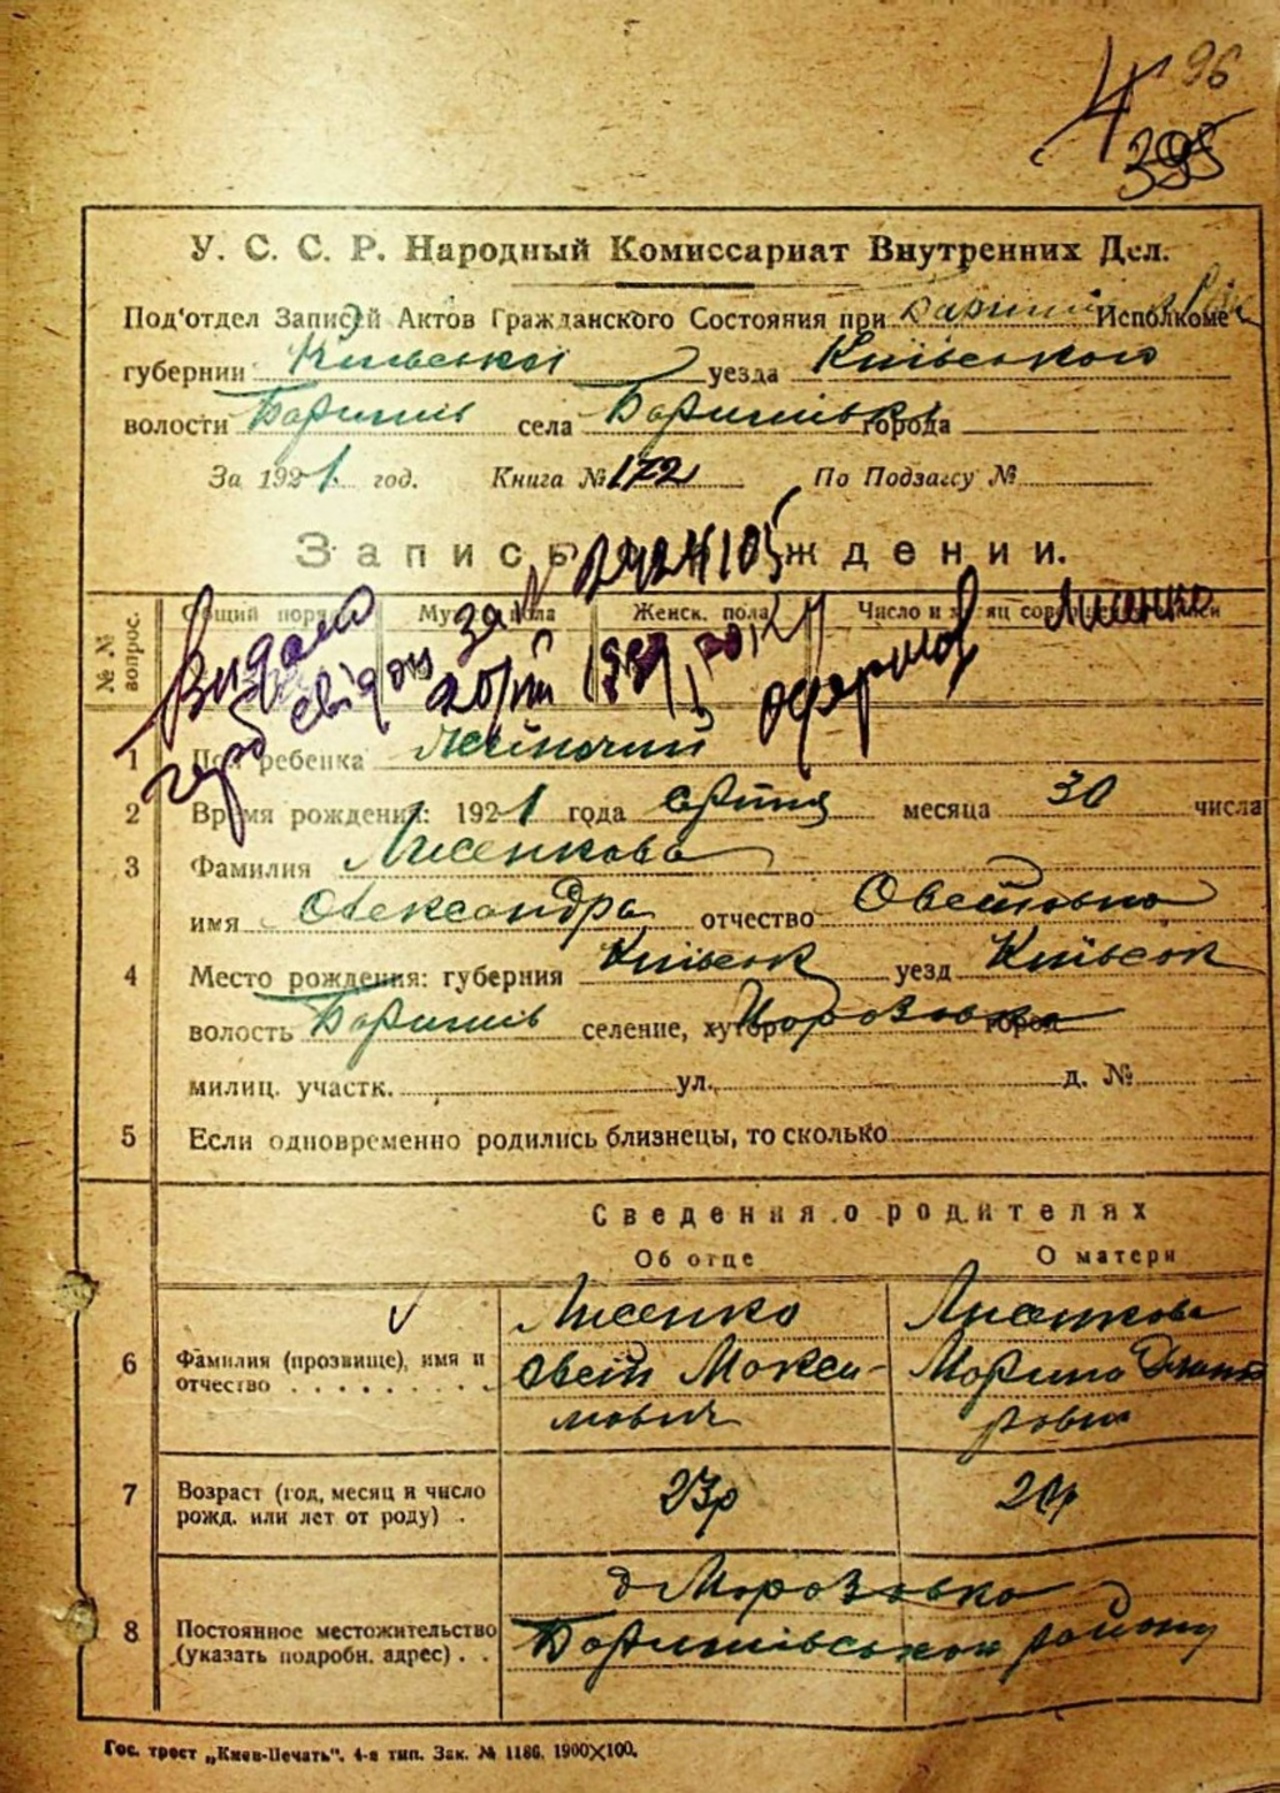 4 96
395
У. С. С. Р. Народный Комиссариат Внутренних Дел.
Под'отдел Записей Актов Гражданского Состояния при Баришів Исполкоме
губернии Київської уезда Київського
волости Баришів села Баришівка города
За 1921 год. Книга № 172 По Подзагсу №
Запись ждении.
Видано за № 105 Лисенко
№№ вопрос. Общий поряд Муж пола Женск. пола Число и
свідоц
1 Пол ребенка Жіночий
2 Время рождения: 1921 года Квітня месяца 30 числа
3 Фамилия Лисенкова
имя Олександра отчество Овсіївна
4 Место рождения: губерния Київськ уезд Київськ
волость Баришів селение, хутор Морозовка город
милиц. участк. ул. д. №
5 Если одновременно родились близнецы, то сколько
Сведения о родителях
Об отце О матери
6 Фамилия (прозвище), имя и отчество
Лисенко Лисенкова
Овсій Макси- Марина Дмит
мович ровна
7 Возраст (год, месяц и число рожд. или лет от роду) 23р 20р
8 Постоянное местожительство (указать подробн. адрес)
д Морозовка
Баришівського району
Гос. трест „Киев-Печать". 4-я тип. Зак. № 1186. 1900×100.